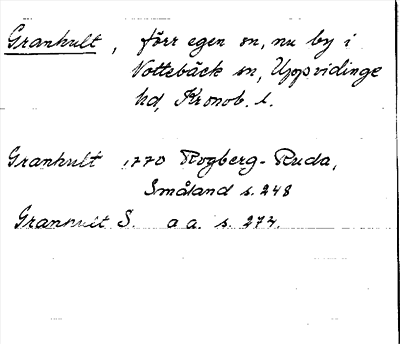 Granhult, förr egen sn, nu by i
Nottebäck sn, Uppvidinge
hd, Kronob. l.
Granhult 1770 Rogberg-Ruda,
Småland s. 248
Granhult S. a a. s. 272.